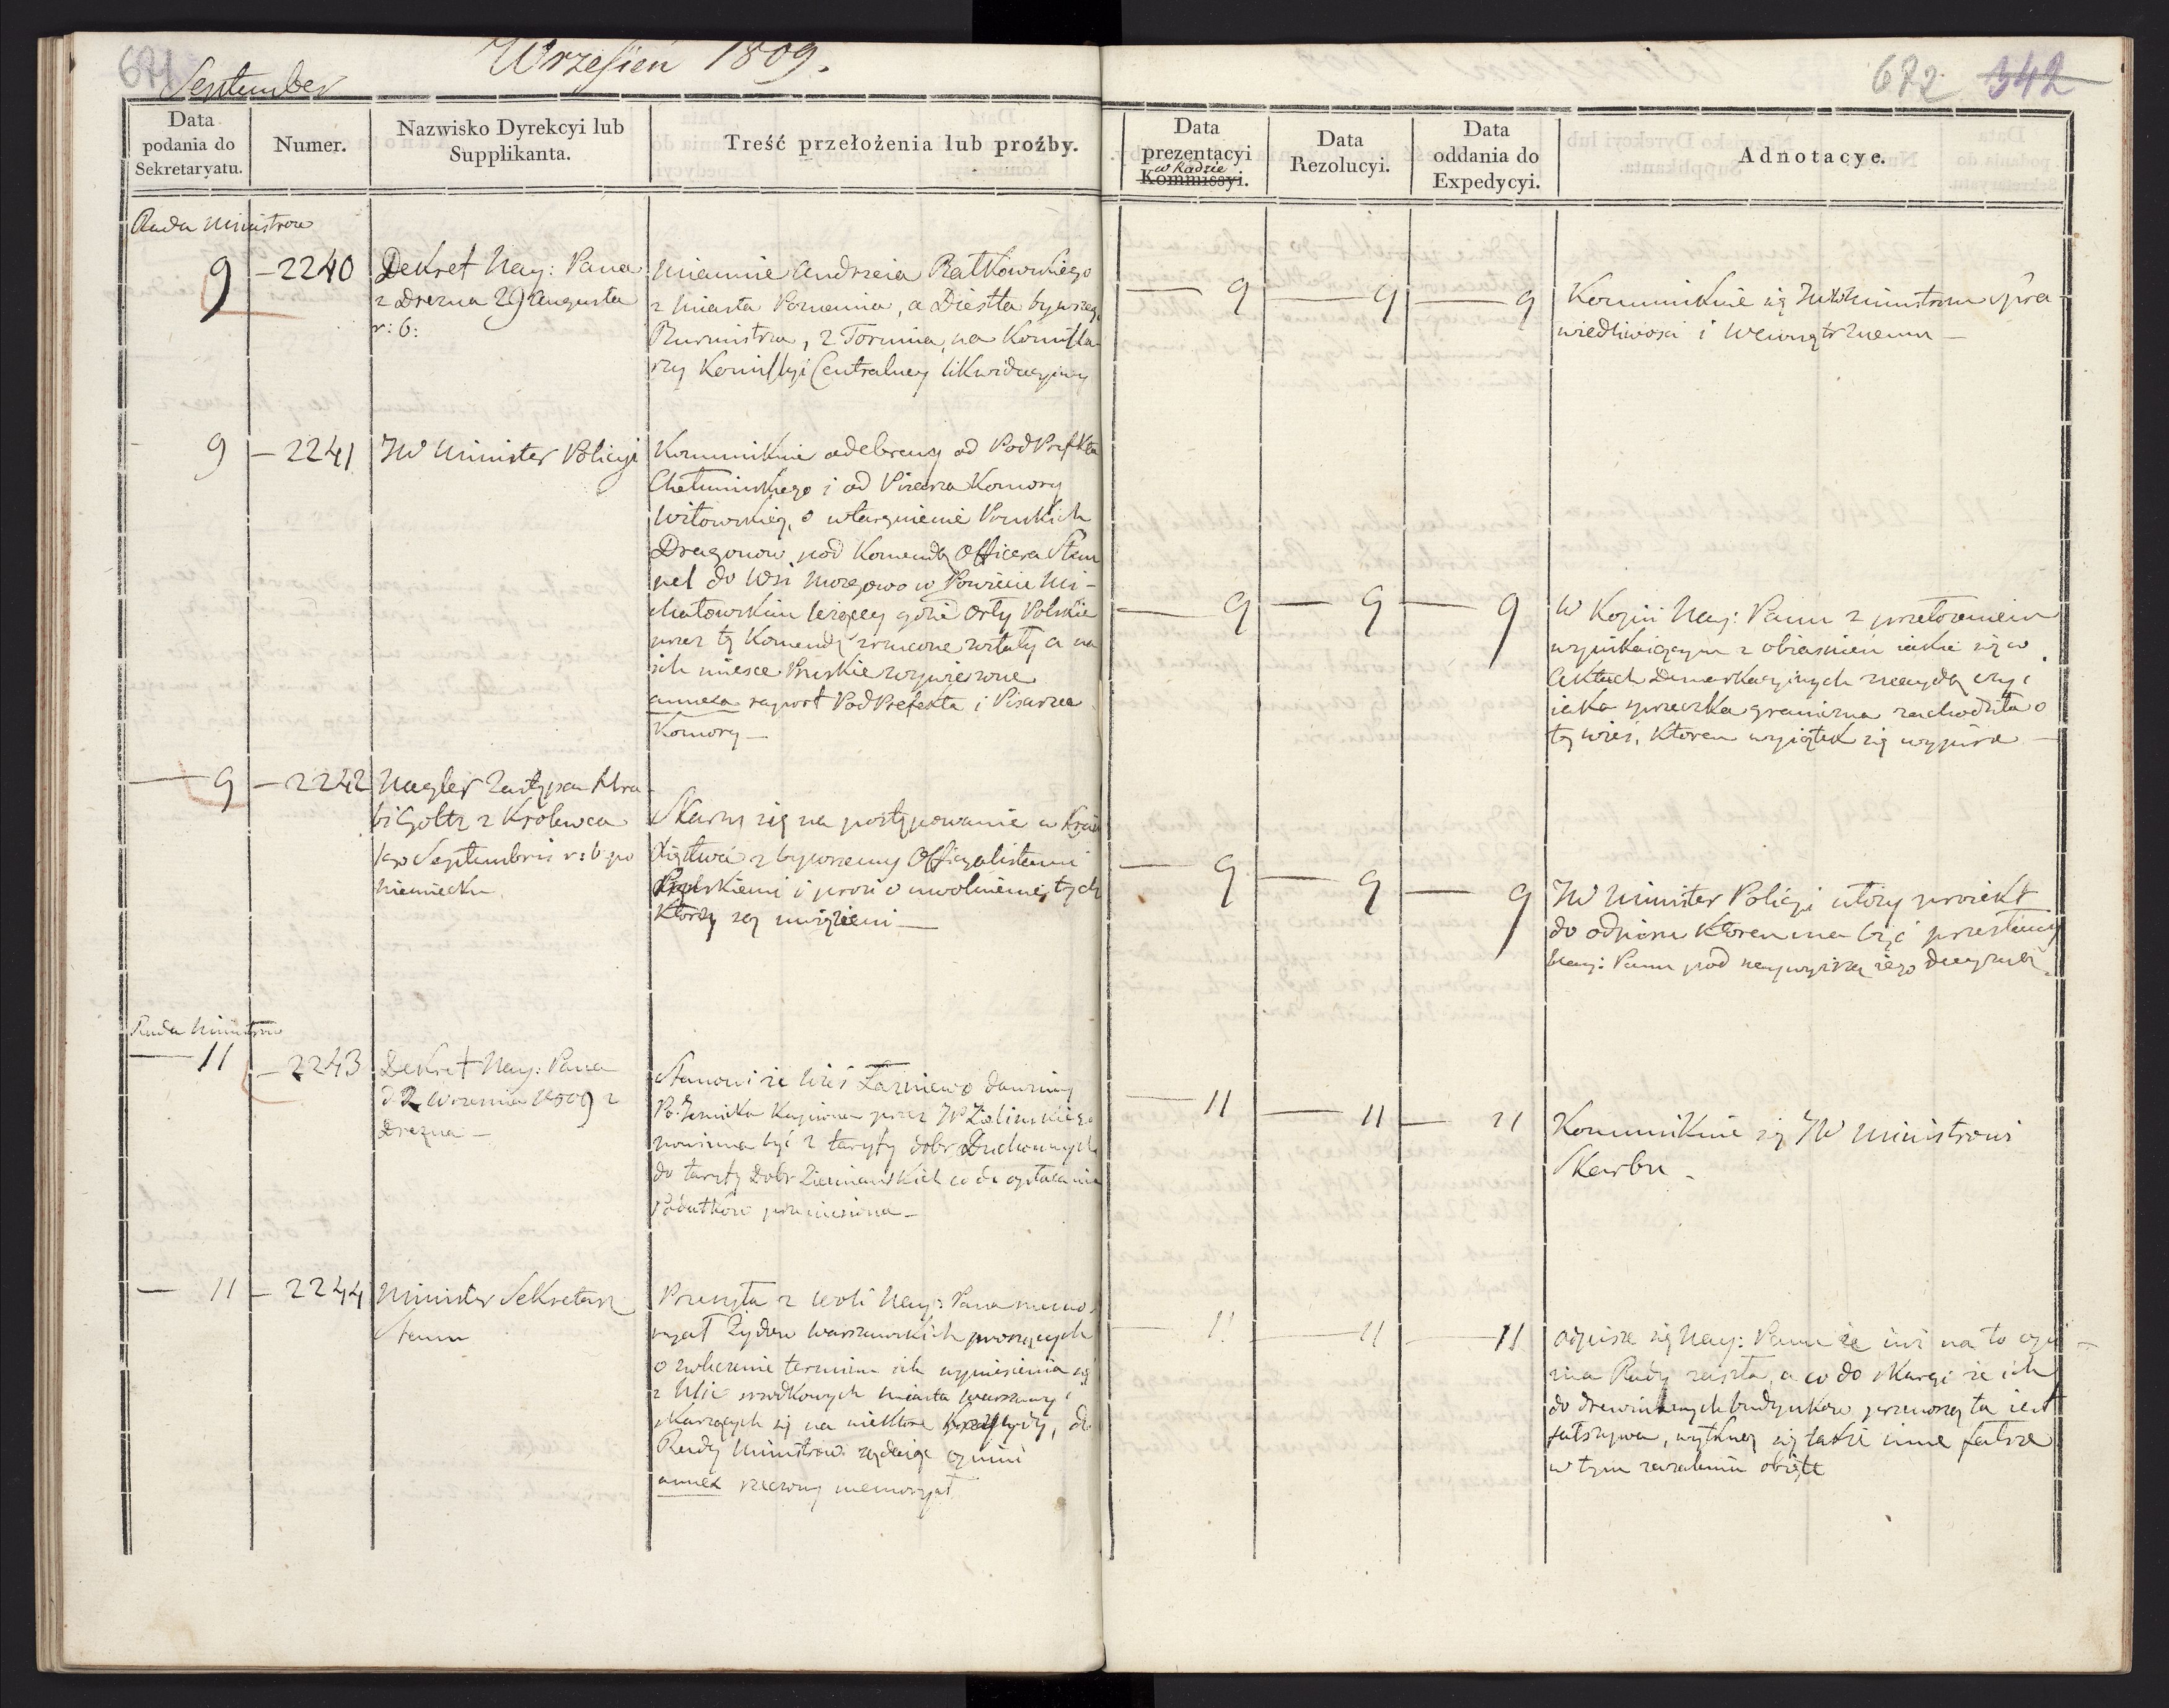 671
September
Wrzesień 1809.
672 342
Data podania do Sekretaryatu.
Numer.
Nazwisko Dyrekcyi lub Supplikanta.
Treść przełożenia lub proźby.
Data prezentacyi w Radzie Kommissyi.
Data Rezolucyi.
Data oddania do Expedycyi.
Adnotacye.
Rada Ministrow
9 — 2240
Dekret Nay: Pana
z Drezna 29 Augusta
r: b:
Mianuie Andrzeia Ratkowskiego
z Miasta Poznania, a Diestla bywszego
Burmistrza, z Torunia, na Komissa-
rzy Komissyi Centralney likwidacyiney
— 9 — 9 — 9
Kommunikuie się JWWMinistrom spra-
wiedliwosci i Wewnętrznemu —
9 — 2241
JW Minister Policyi
Kommunikuie odebrany od PodPrefkta
Chełmińskiego i od Pisarza Komory
o wtargnienie Pruskich
Dragonow pod Komendą Officera
do Wsi w Powiecie Mi-
chałowskim leżącey gdzie Orły Polskie
przez tę Komendę zrzucone zostały a na
ich mieysce Pruskie wywieszone
annexa raport PodPrefekta i Pisarza
Komory —
— 9 — 9 — 9
W Kopii Nay: Panu z przełożeniem
wynikaiącym z obiasnień iakie się w
Aktach Demarkacyinych znaydą czyi
iaka sprzeczka graniczna zachodziła o
tę wieś, ktoren wyiątek się wypisze —
— 9 — 2242
Nagler Zastępca Hra-
bi Goltz z Krolewca
Septembris r: b po
niemiecku.
Skarży się na postępowanie w Xię
stwie z bywszemy Officyalistami
Pruskiemi i prosi o uwolnienie tych
ktorzy są uwięzieni —
— 9 — 9 — 9
JW Minister Policyi ułoży proiekt
do odpisu ktoren ma być przesłany
Nay: Panu pod naywyższą iego decyzyią.
Rada Ministrow
— 11 — 2243
Dekret Nay: Pana
d: 2 Wrzesnia 1809 z
Drezna —
Stanowi że Wieś Łazniewo dawniey
kupiona przez JP Zielinskiego
powinna być z taryfy dobr Duchownych
do taryfy Dobr Ziemianskich co do opłacania
Podatkow przeniesiona —
— 11 — 11 — 11
Kommunikuie się JW Ministrowi
Skarbu —
— 11 — 2244
Minister Sekretarz
Stanu
Przesyła z woli Nay: Pana memo-
ryał Żydow Warszawskich proszących
o zwleczenie terminu ich wyniesienia się
z Ulic srzodkowych miasta Warszawy i
skarżących się na niektore krzywdy, do
Rady Ministrow opinii
annex rzeczony memoryał
— 11 — 11 — 11
Odpisze się Nay: Panu że iuż na to opi-
nia Rady zaszła, a co do skargi że ich
do drewnianych budynkow przenoszą ta iest
fałszywa, wytkną się także inne fałsze
w tym zażaleniu obięte